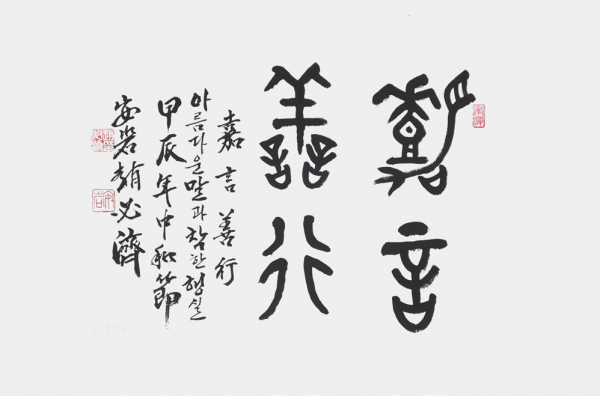 嘉言
善行
嘉言善行
아름다운 말과 참한 행실
甲辰年中和節
安岩 趙必濟